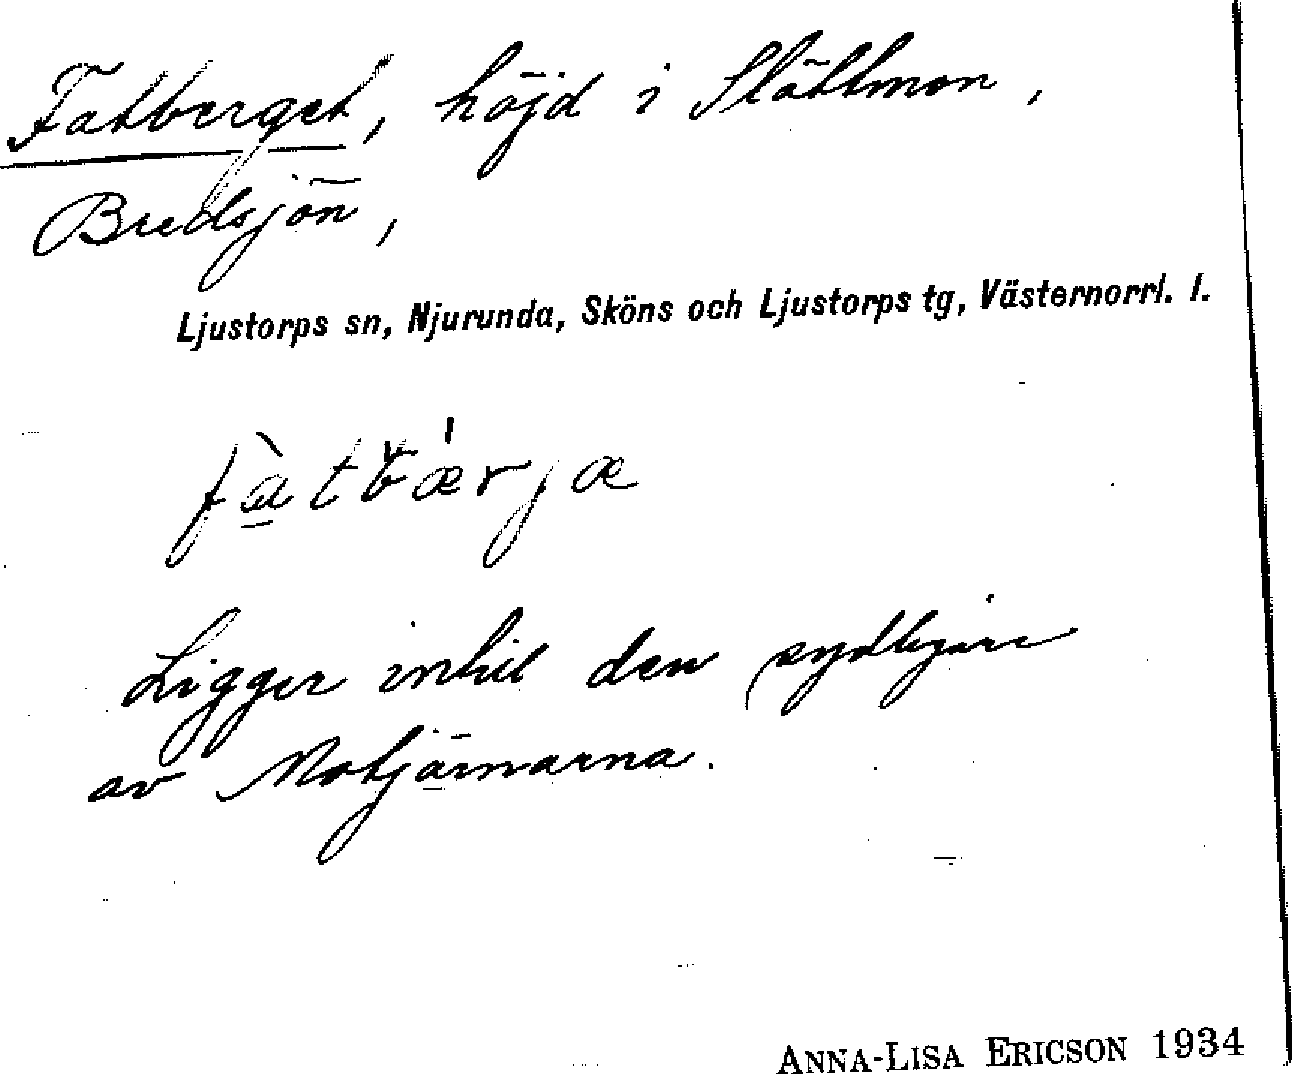 Fatberget, höjd i Slättmon,
Bredsjön,
Ljustorps sn, Njurunda, Sköns och Ljustorps tg, Västernorrl. l.
fàtbærjæ
Ligger intill den sydligare
av Motjärnarna.
ANNA-LISA ERICSON 1934